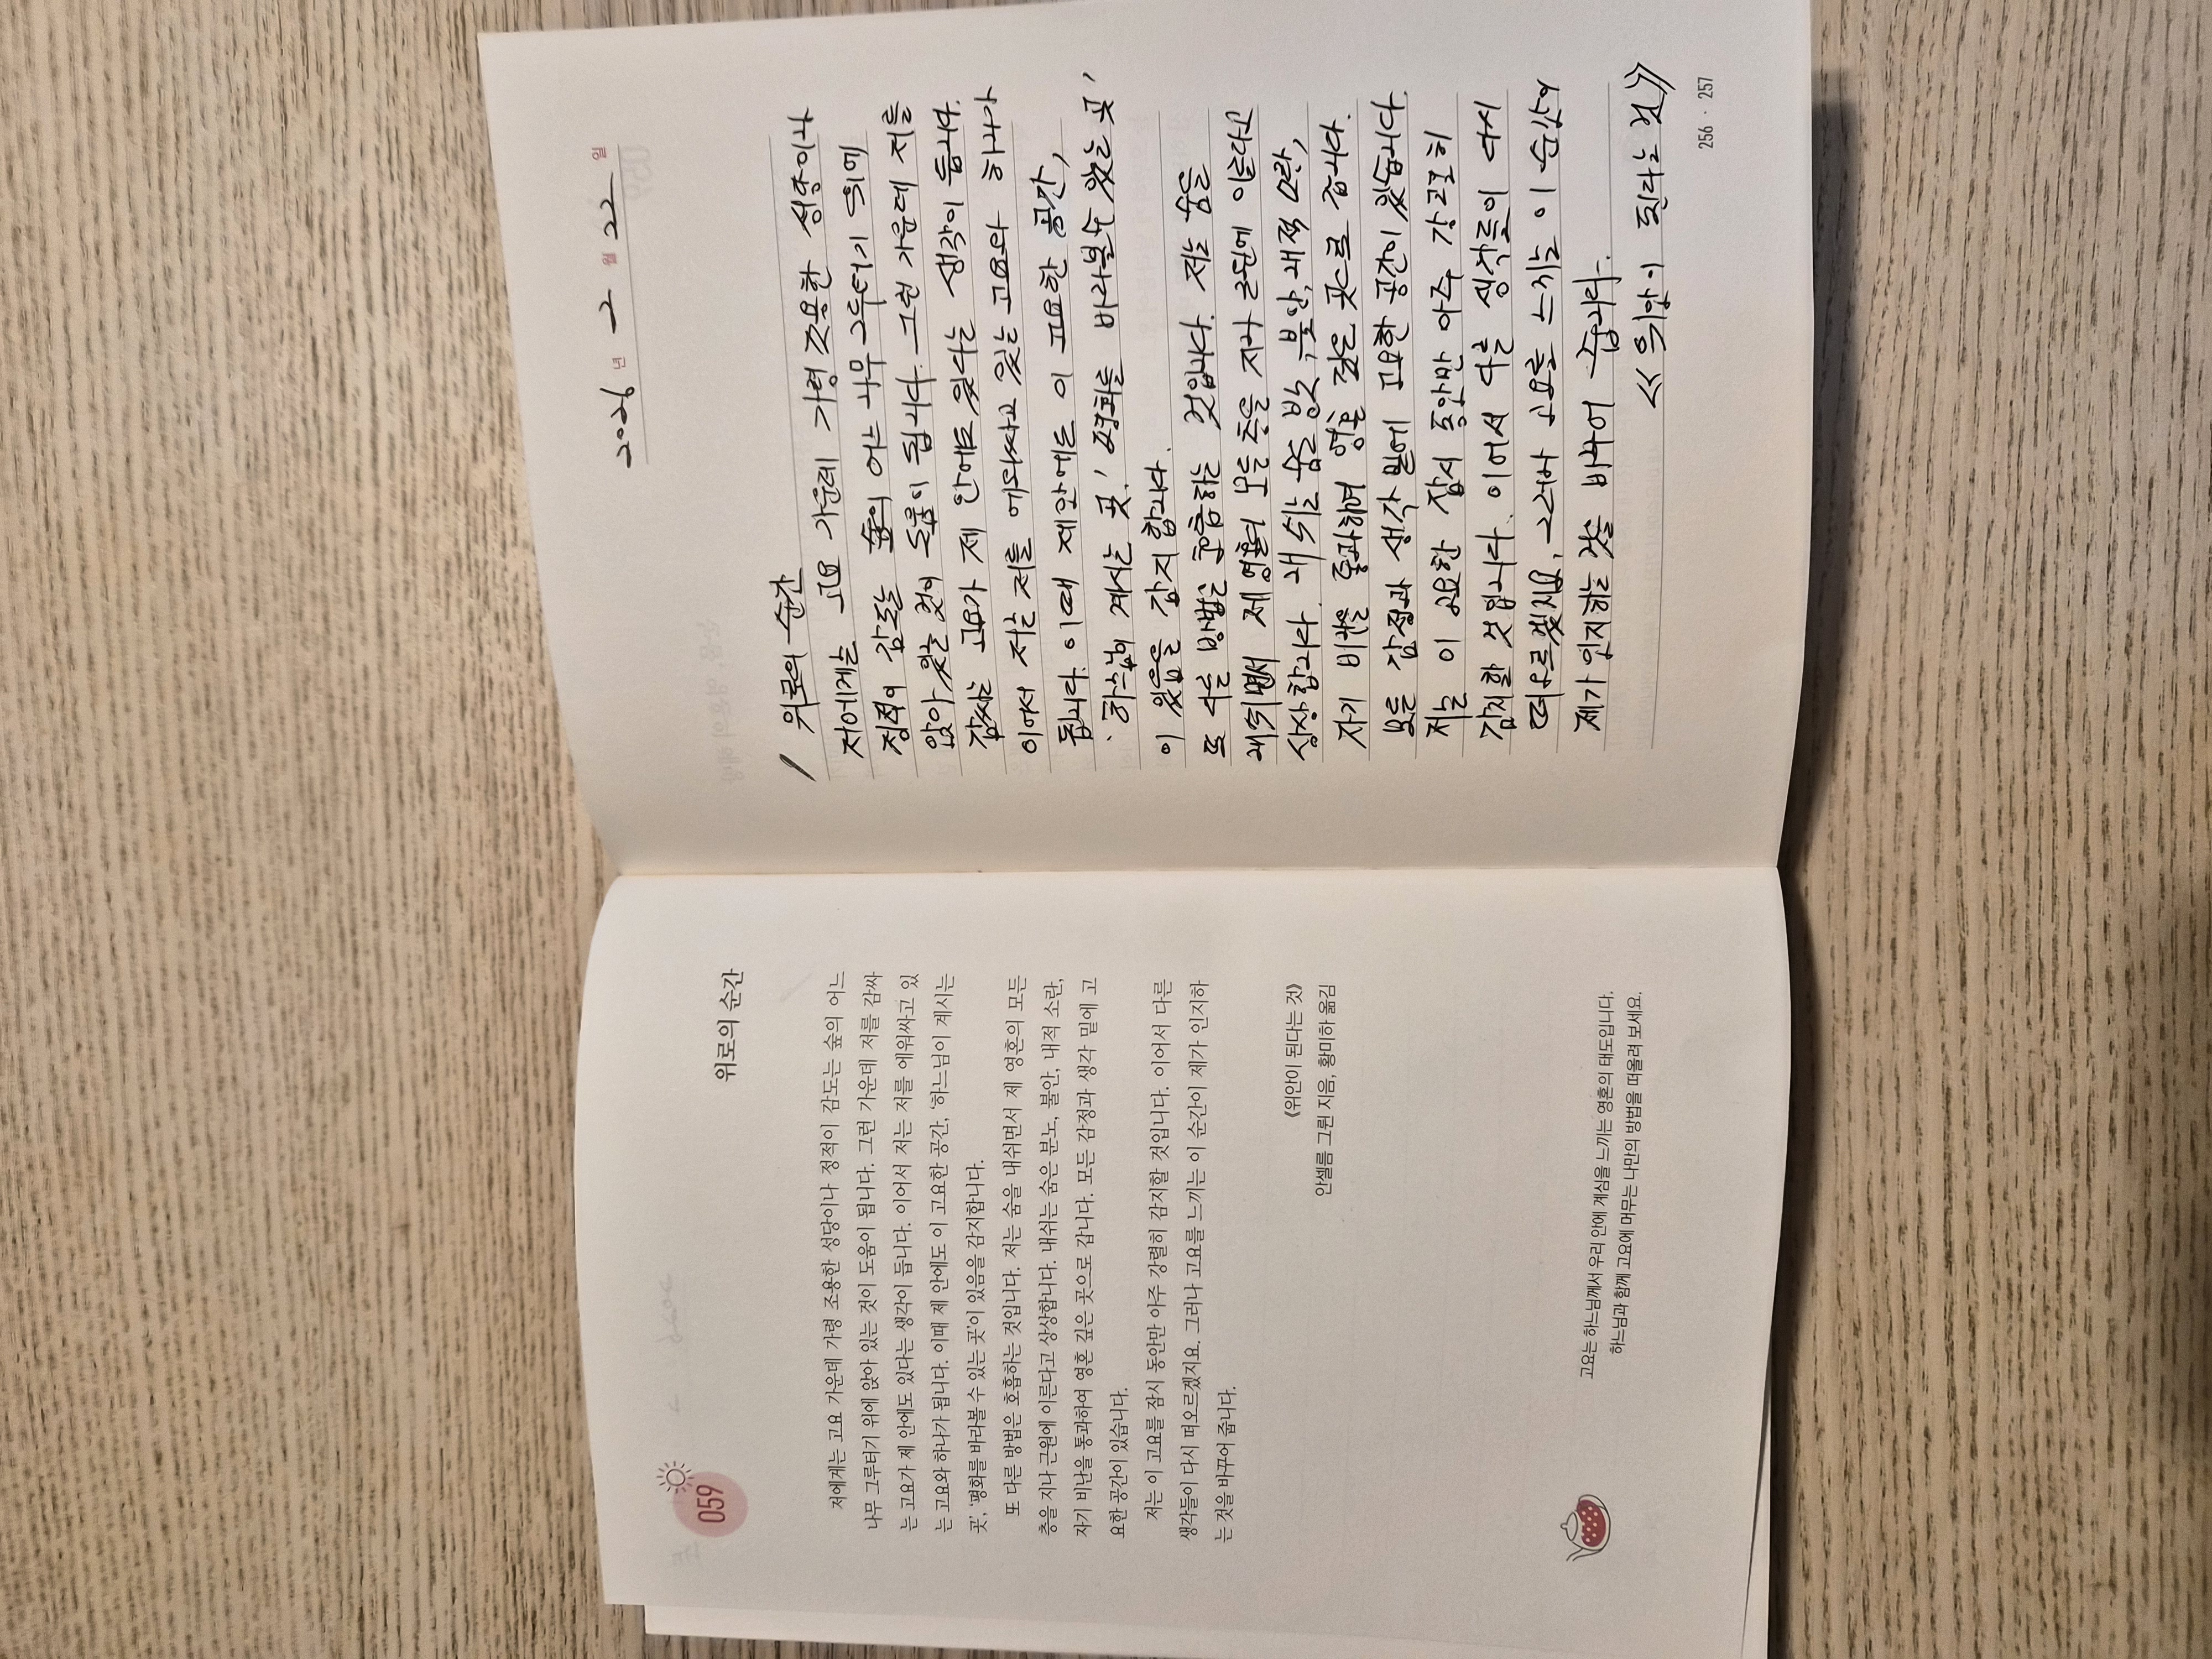 059
위로의 순간
저에게는 고요 가운데 가령 조용한 성당이나 정적이 감도는 숲의 어느
나무 그루터기 위에 앉아 있는 것이 도움이 됩니다. 그런 가운데 저를 감싸
는 고요가 제 안에도 있다는 생각이 듭니다. 이어서 저는 저를 에워싸고 있
는 고요와 하나가 됩니다. 이때 제 안에도 이 고요한 공간, '하느님이 계시는
곳', '평화를 바라볼 수 있는 곳'이 있음을 감지합니다.
또 다른 방법은 호흡하는 것입니다. 저는 숨을 내쉬면서 제 영혼의 모든
층을 지나 근원에 이른다고 상상합니다. 내쉬는 숨은 분노, 불안, 내적 소란,
자기 비난을 통과하여 영혼 깊은 곳으로 갑니다. 모든 감정과 생각 밑에 고
요한 공간이 있습니다.
저는 이 고요를 잠시 동안만 아주 강렬히 감지할 것입니다. 이어서 다른
생각들이 다시 떠오르겠지요. 그러나 고요를 느끼는 이 순간이 제가 인지하
는 것을 바꾸어 줍니다.
《위안이 된다는 것》
안셀름 그륀 지음, 황미하 옮김
고요는 하느님께서 우리 안에 계심을 느끼는 영혼의 태도입니다.
하느님과 함께 고요에 머무는 나만의 방법을 떠올려 보세요.
2026 년 2 월 22 일
위로의 순간
저에게는 고요 가운데 가령 조용한 성당이나
정적이 감도는 숲의 어느 나무 그루터기 위에
앉아 있는 것이 도움이 됩니다. 그런 가운데 저를
감싸는 고요가 제 안에도 있다는 생각이 듭니다.
이어서 저는 저를 에워싸고 있는 고요와 하나가
됩니다. 이때 제안에도 이 고요한 공간,
'하느님이 계시는 곳', '평화를 바라볼수 있는 곳'
이 있음을 감지합니다.
또 다른 방법은 호흡하는 것입니다. 저는 숨을
내쉬면서 제 영혼의 모든 층을 지나 근원에 이른다고
상상합니다. 내쉬는 숨은 불안, 내적 소란,
자기 비난을 통과하여 영혼 깊은 곳으로 갑니다.
모든 감정과 생각 밑에 고요한 공간이 있습니다.
저는 이 고요한 잠시 동안만 아주 강렬히
감지할 것입니다. 이어서 다른 생각들이 다시
떠오르겠지요. 그러나 고요를 느끼는 이 순간이
제가 인지하는 것을 바꾸어 줍니다.
《위안이 된다는 것》
256 · 257